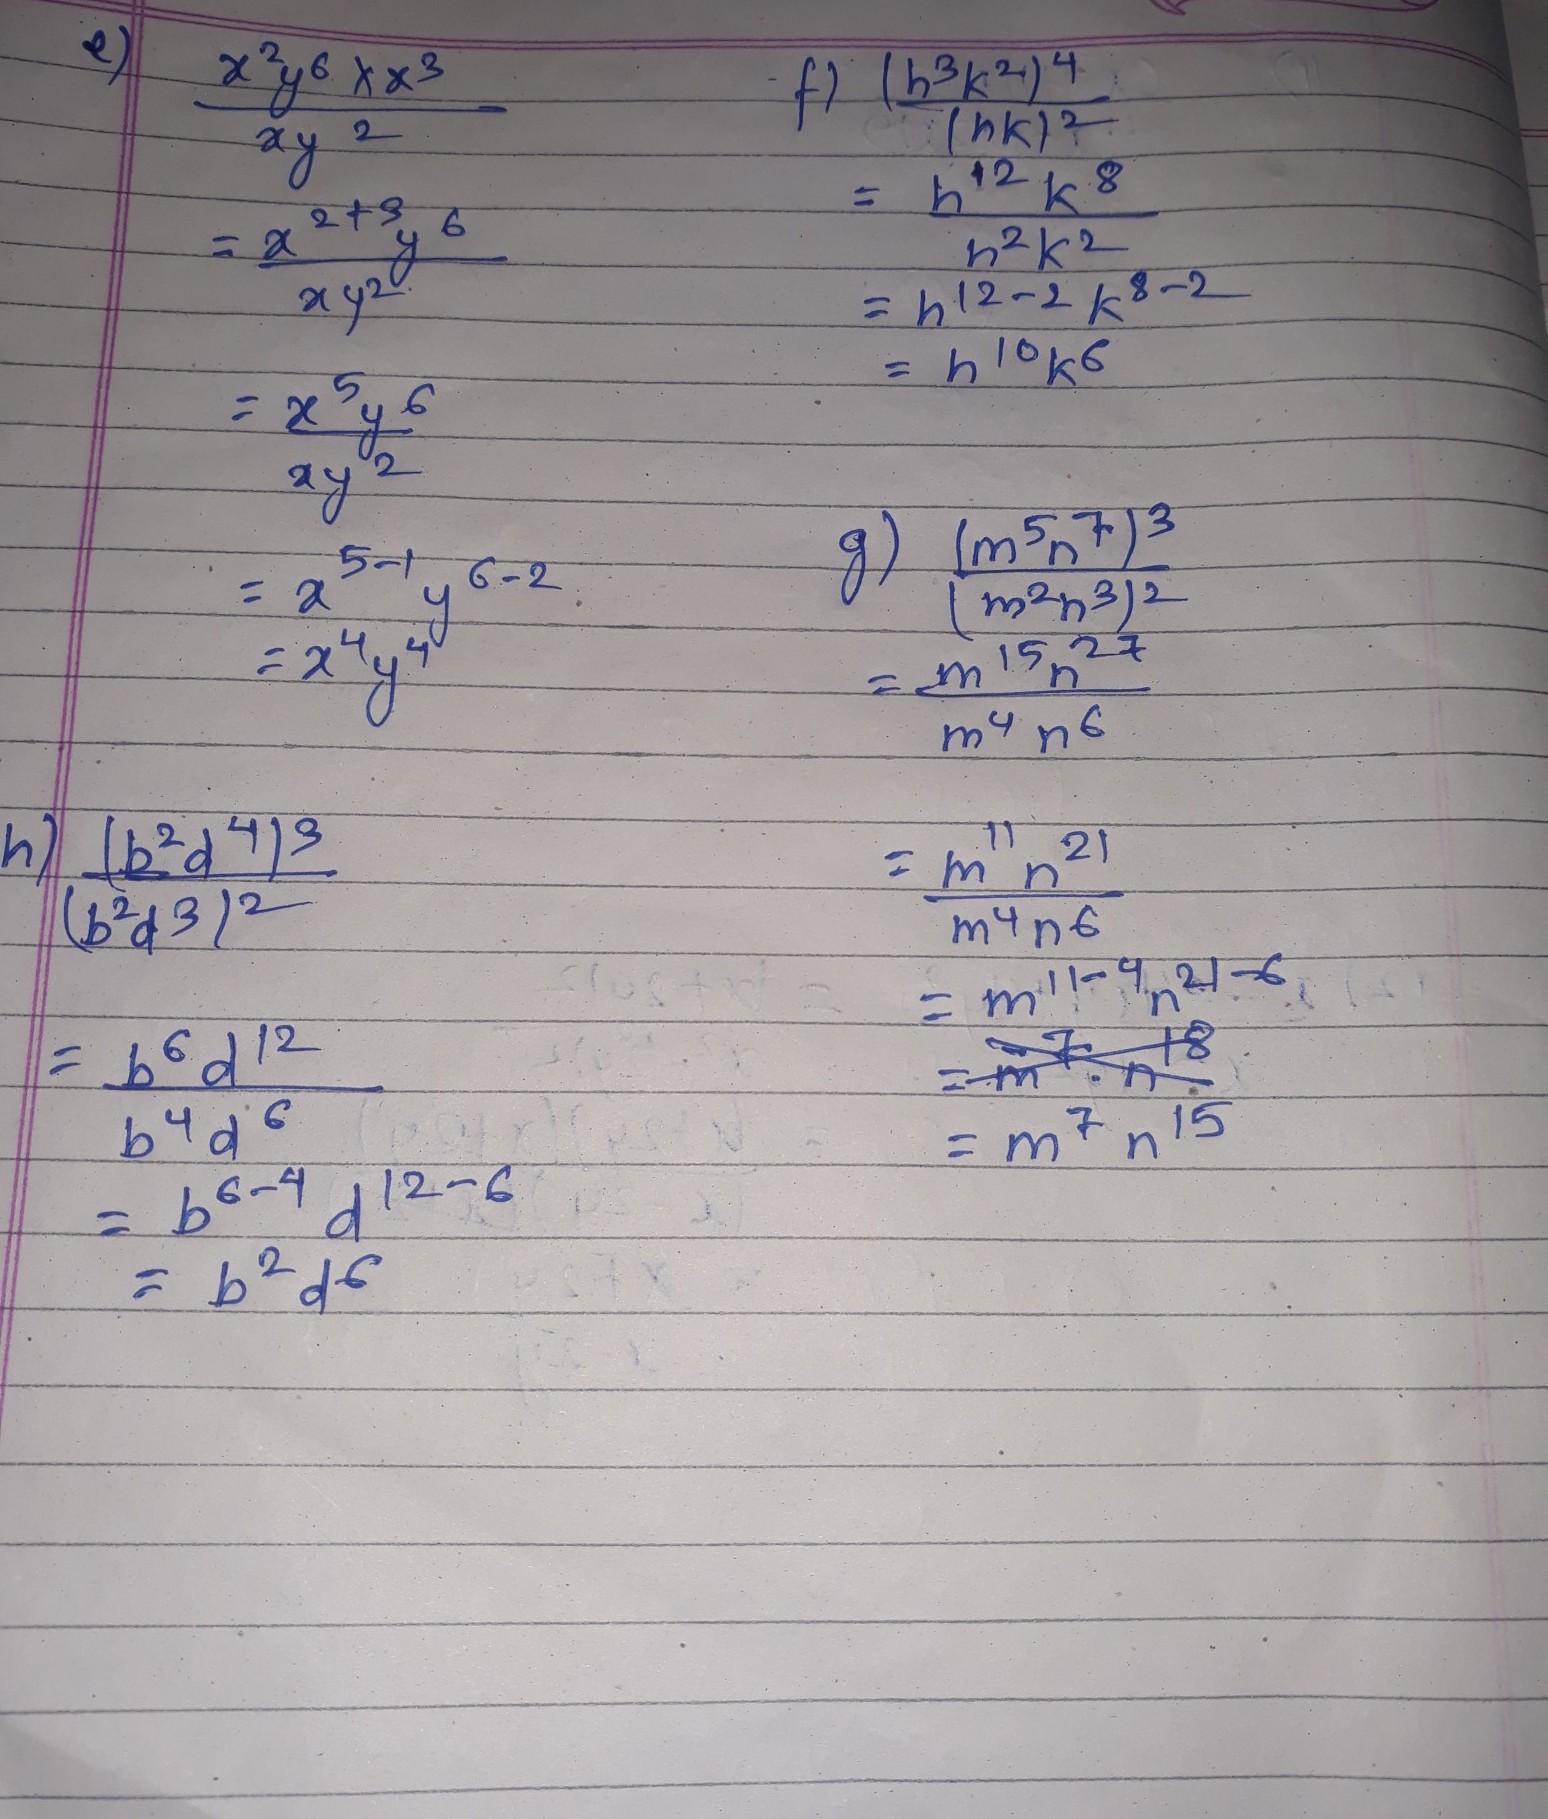 e) x²y⁶ × x³
xy²
= x²⁺³y⁶
xy²
= x⁵y⁶
xy²
= x⁵⁻¹y⁶⁻²
= x⁴y⁴
f) (h³k²)⁴
(hk)²
= h¹²k⁸
h²k²
= h¹²⁻²k⁸⁻²
= h¹⁰k⁶
g) (m⁵n⁷)³
(m²n³)²
= m¹⁵n²⁷
m⁴n⁶
= m¹¹n²¹
m⁴n⁶
= m¹¹⁻⁴n²¹⁻⁶
= m⁷.n¹⁸
= m⁷n¹⁵
h) (b²d⁴)³
(b²d³)²
= b⁶d¹²
b⁴d⁶
= b⁶⁻⁴d¹²⁻⁶
= b²d⁶